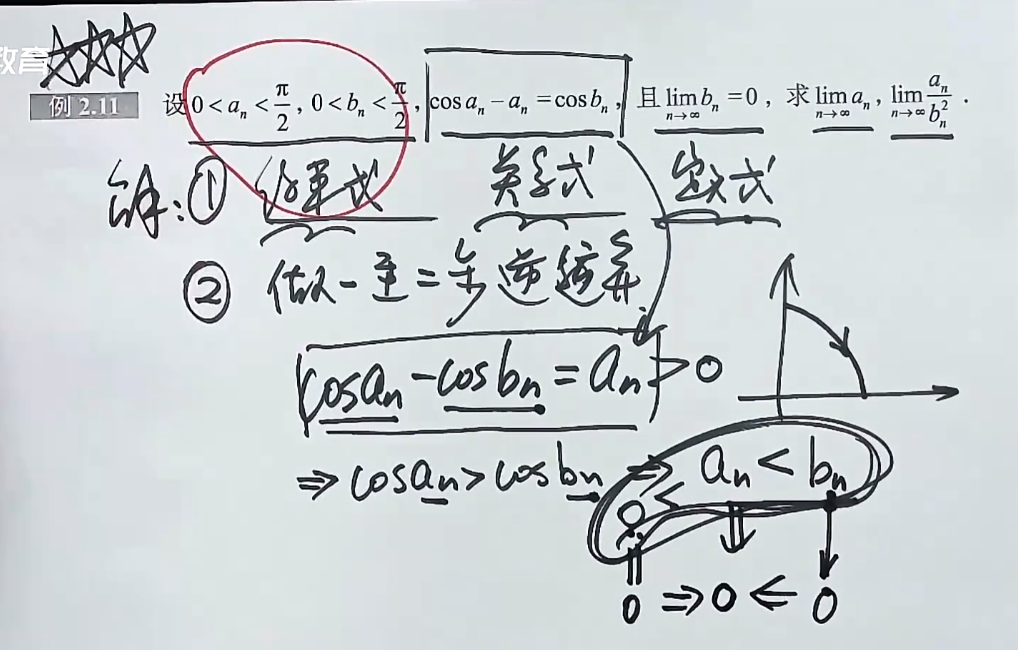 教育
例 2.11 设 0 < aₙ < π/2, 0 < bₙ < π/2, cos aₙ − aₙ = cos bₙ, 且 lim_{n→∞} bₙ = 0, 求 lim_{n→∞} aₙ, lim_{n→∞} aₙ/bₙ².
解: ①
② 做一至二步逆运算
cosaₙ − cosbₙ = aₙ > 0
⇒ cosaₙ > cosbₙ ⇒ aₙ < bₙ
0 <
0 ⇒ 0 ← 0